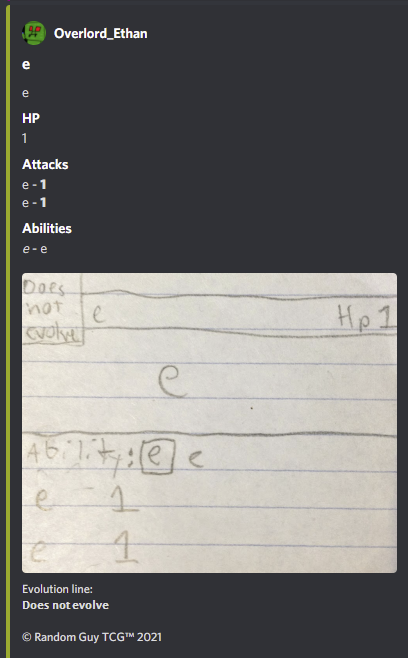 Overlord_Ethan
e
e
HP
1
Attacks
e - 1
e - 1
Abilities
e - e
Does
not
evolve
e
Hp 1
e
Ability: e e
e - 1
e 1
Evolution line:
Does not evolve
© Random Guy TCG™ 2021